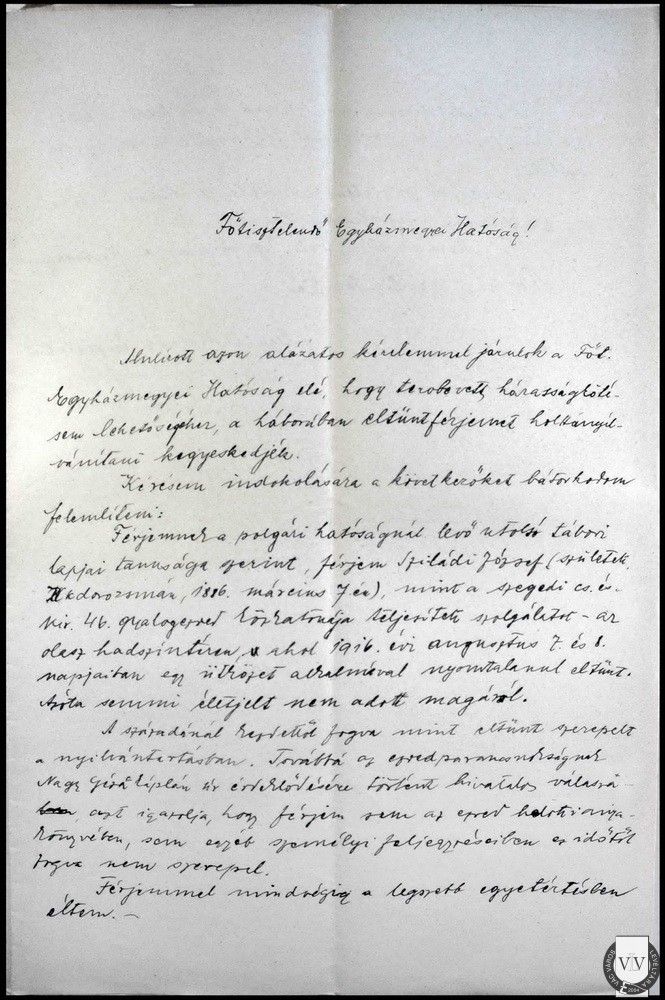 Főtisztelendő Egyházmegyei Hatóság!
Alulírott azon alázatos kérelemmel járulok a Főt.
Egyházmegyei Hatóság elé, hogy tervbevett házasságköté-
sem lehetőségéhez, a háborúban eltünt férjemet holtányil-
vánítani kegyeskedjék.
Kérésem indokolására a következőket bátorkodom
felemlíteni:
Férjemnek a polgári hatóságnál levő utolsó tábori
lapjai tanusága szerint, férjem Sziládi József (született
Kkdorozsmán, 1886. március 7 én), mint a szegedi cs. és
kir. 46. gyalogezred közkatonája teljesített szolgálatot - az
olasz hadszintéren, ahol 1916. évi augusztus 7. és 8.
napjaiban egy ütközet alkalmával nyomtalanul eltünt.
Azóta semmi életjelt nem adott magáról.
A századánál kezdettől fogva mint eltünt szerepelt
a nyilvántartásban. Továbbá az ezredparancsnokságnak
Nagy Géza káplán úr érdeklődésére történt hivatalos válasza
azt igazolja, hogy férjem sem az ezred halotti anya-
könyvében, sem egyéb személyi feljegyzéseiben ez időtől
fogva nem szerepel.
Férjemmel mindvégig a legszebb egyetértésben
éltem. –
VÁC VÁROS LEVÉLTÁRA